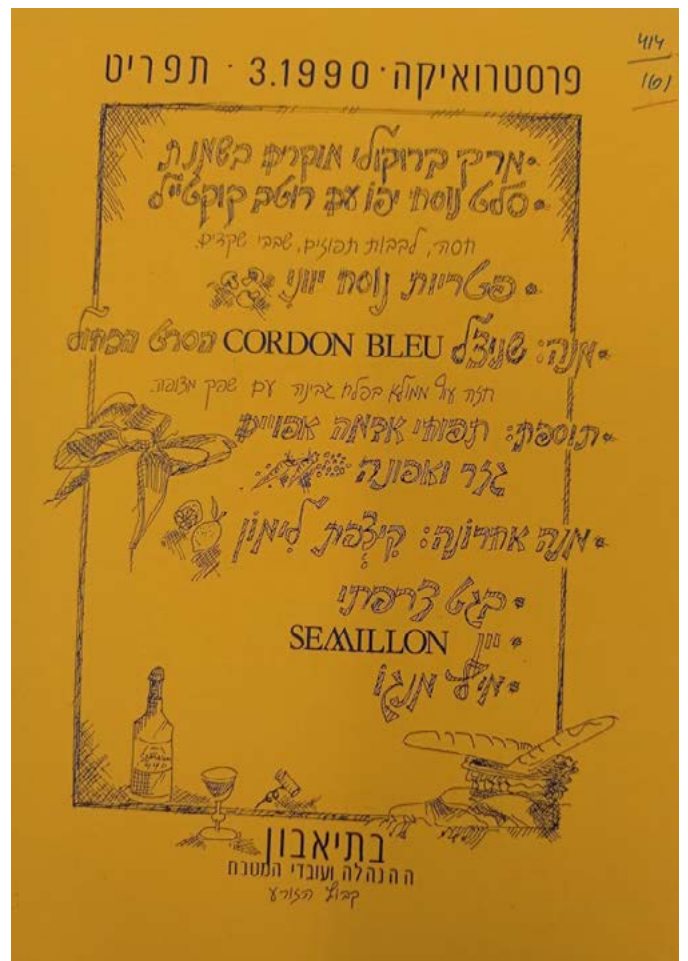 414
161
פרסטרואיקה · 3.1990 · תפריט
מרק ברוקולי מוקרם בשמנת
סלט נוסח יפו עם רוטב קוקטייל
חסה, לבבות תפוזים, שבבי שקדים.
פטריות נוסח יווני
מנה: שניצל CORDON BLEU הסרט הכחול
חזה עוף ממולא בפלח גבינה עם מצופה.
תוספת: תפוחי אדמה אפויים
גזר ואפונה
מנה אחרונה: קיצפת לימון
בגט צרפתי
יין SEMILLON
מיץ מנגו
בתיאבון
ההנהלה ועובדי המטבח
קבוץ הזורע